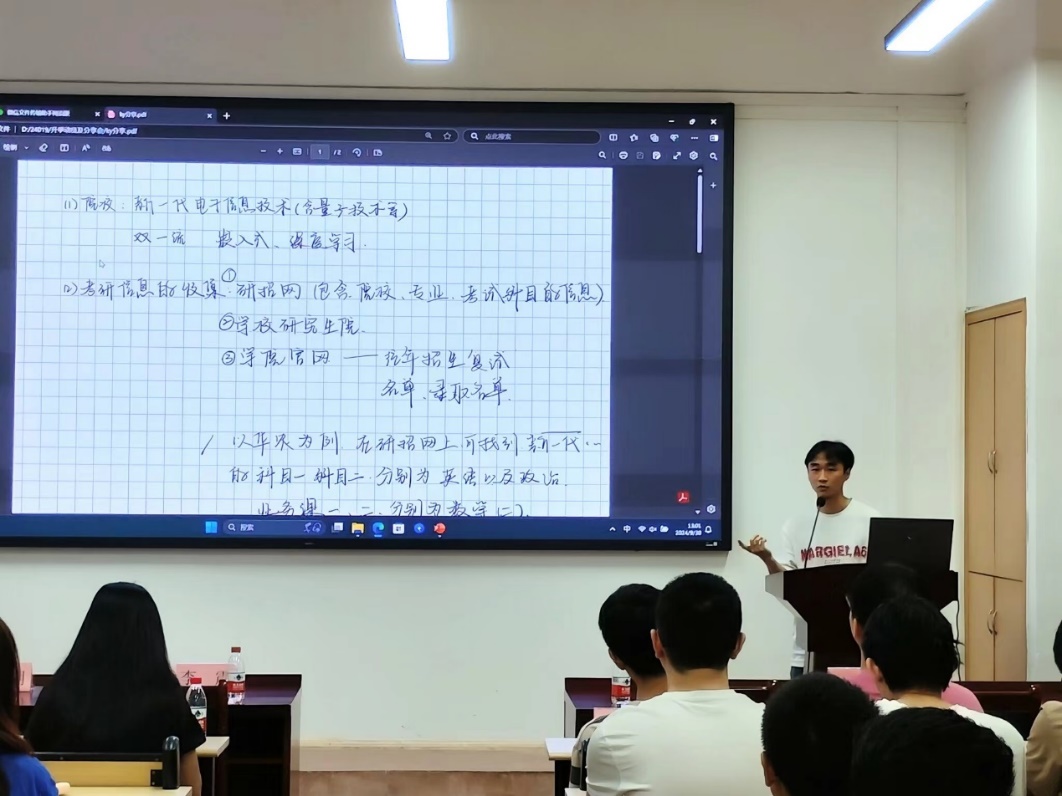 by分享.pdf
D:/24019/升学动员及分享会/by分享.pdf
点此搜索
1 / 2
(1) 院校: 新一代电子信息技术(含量子技术等)
双一流 嵌入式、深度学习.
(2) 考研信息的收集: ①研招网 (包含院校、专业、考试科目的信息)
②学校研究生院.
③学院官网 —— 历年招生复试
名单、录取名单.
以华师为例, 在研招网上可找到新一代…
的科目一科目二分别为英语以及政治.
业务课一、二分别为数学(二).
搜索
中
13:01
2024/9/30
MARGIELA6